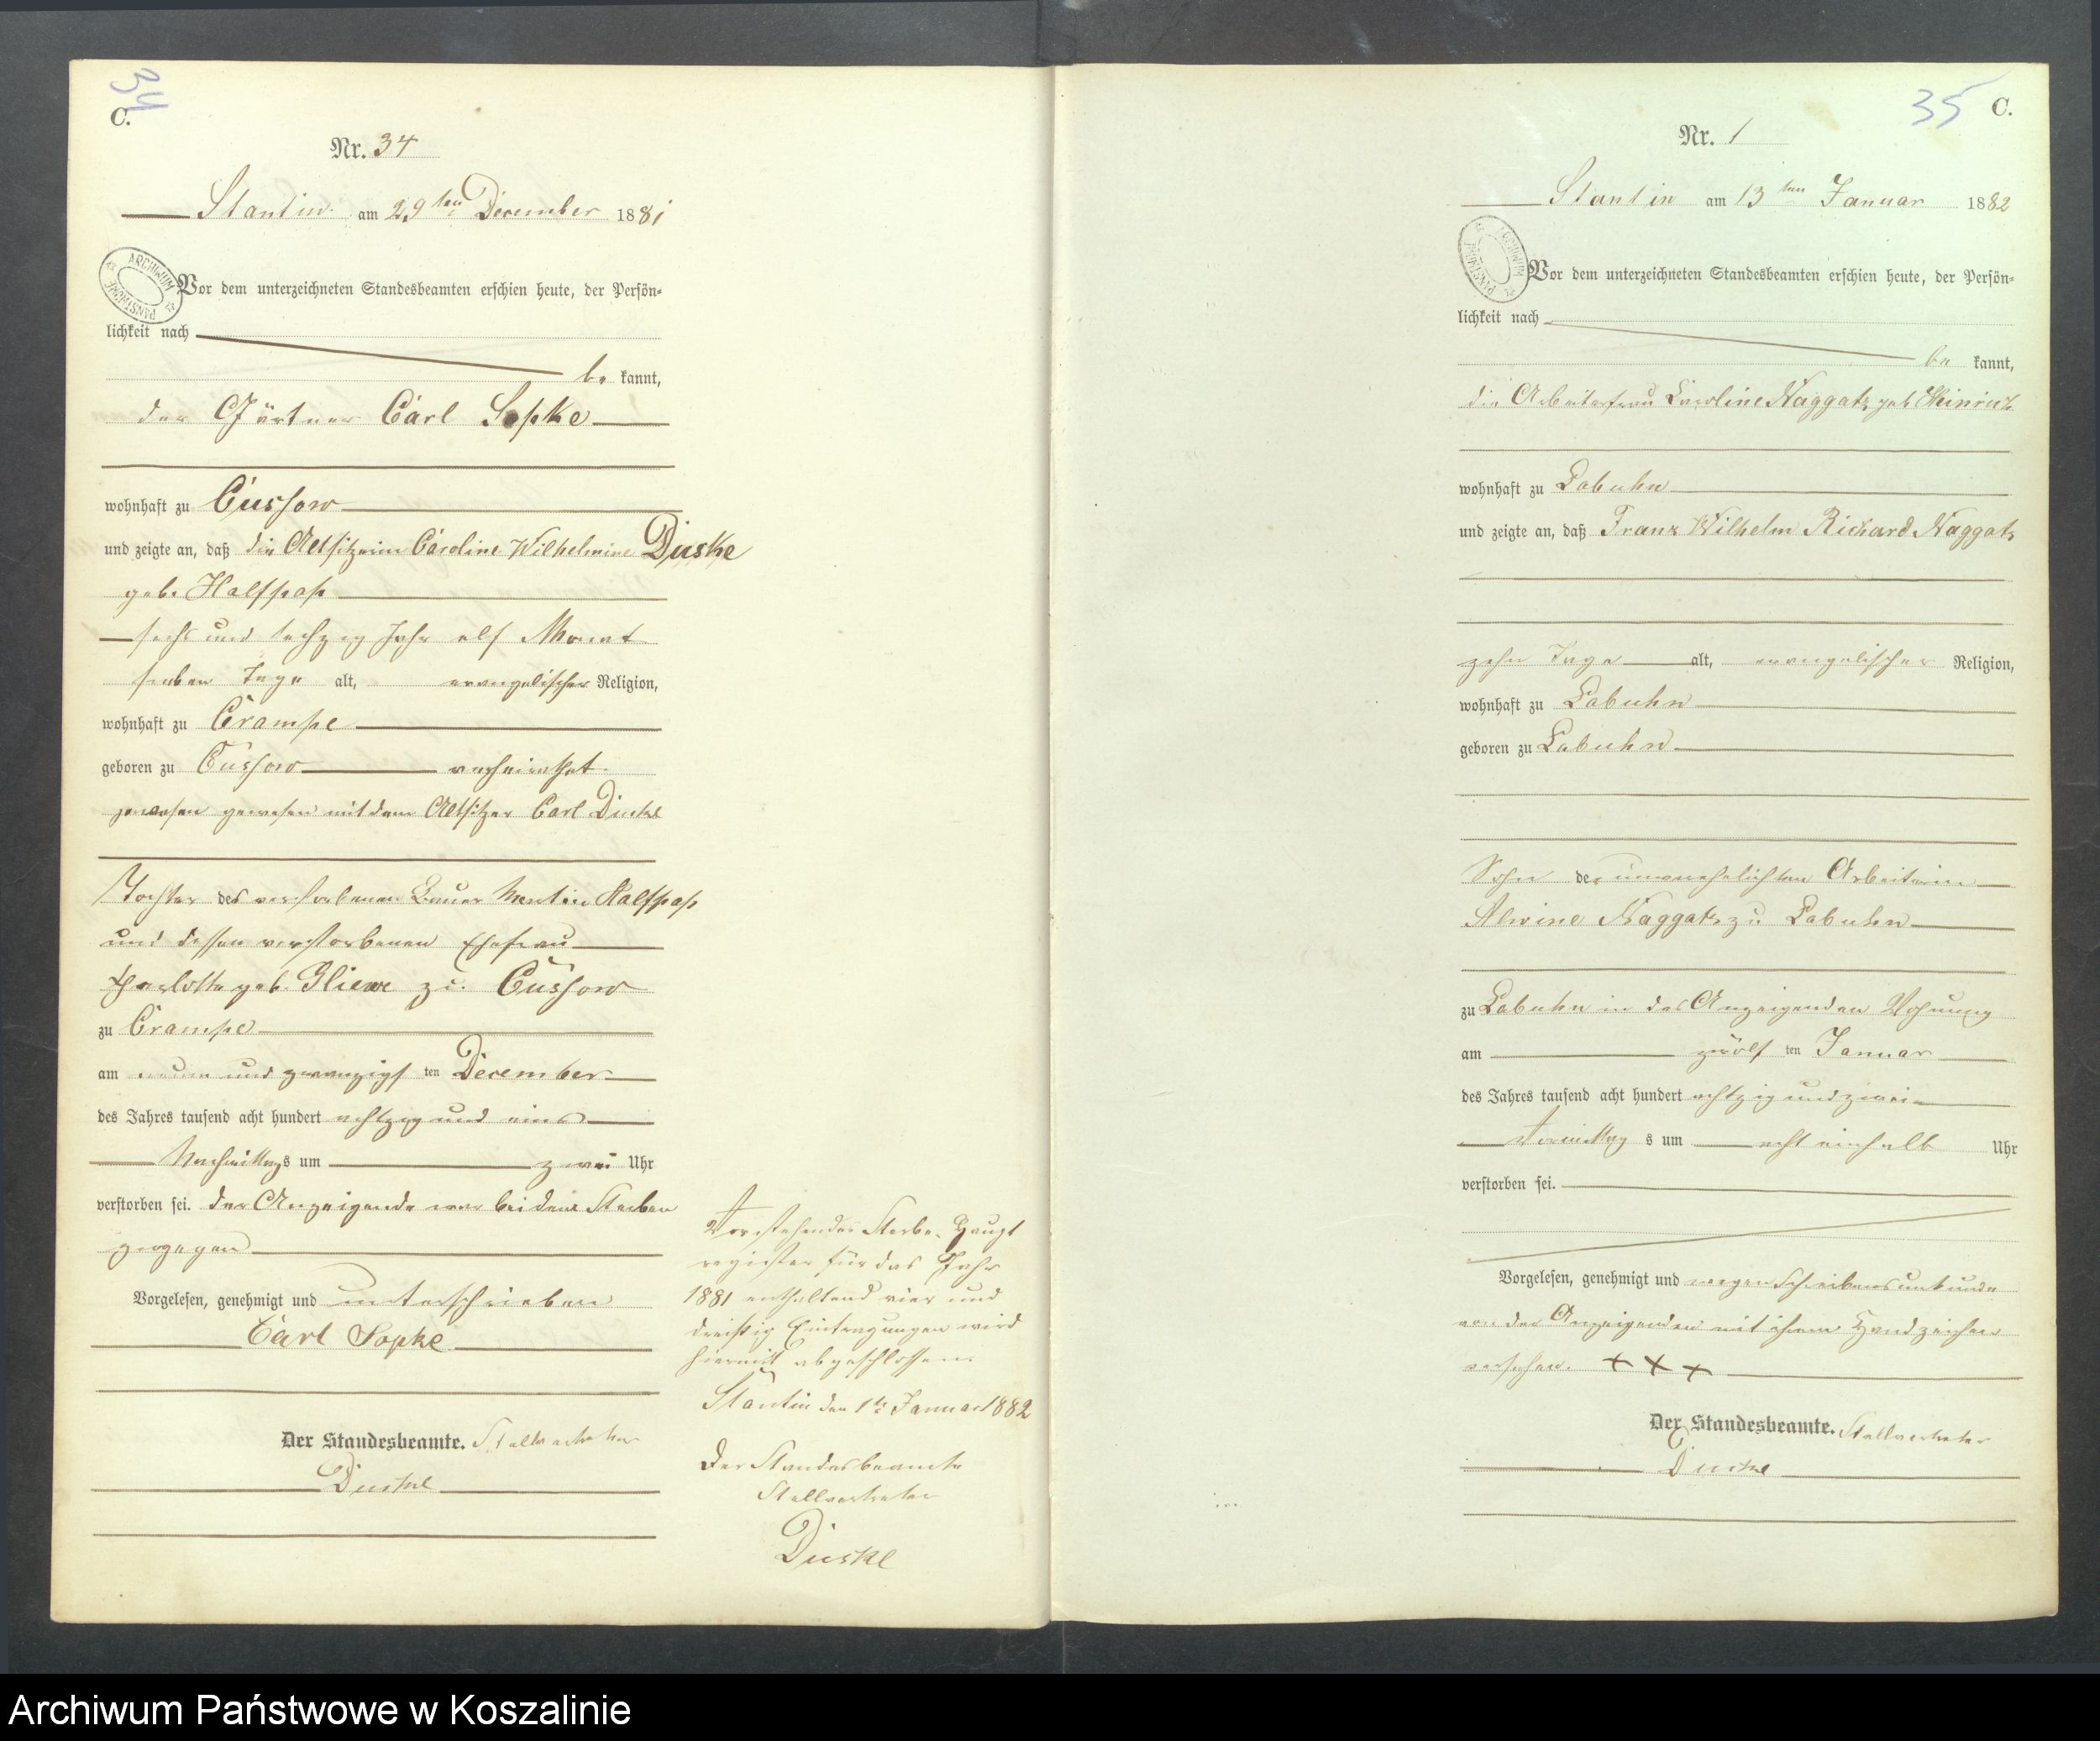 34
C.
Nr. 34
Stantin am 29ten December 1881
ARCHIWUM PAŃSTWOWE
Vor dem unterzeichneten Standesbeamten erschien heute, der Persön-
lichkeit nach
be kannt,
der Gärtner Carl Sopke
wohnhaft zu Cussow
und zeigte an, daß die Altsitzerin Caroline Wilhelmine Duske
geb. Halfpap
sechs und sechzig Jahr elf Monat
sieben Tage alt, evangelischer Religion,
wohnhaft zu Crampe
geboren zu Cussow verheirathet
gewesen gewesen mit dem Altsitzer Carl Duske
Tochter des verstorbenen Bauer Martin Halfpap
und dessen verstorbenen Ehefrau
Charlotte geb. Gliewe zu Cussow
zu Crampe
am neun und zwanzigsten December
des Jahres tausend acht hundert achtzig und eins
Nachmittags um zwei Uhr
verstorben sei. der Anzeigende war bei dem Sterben
zugegen
Vorgelesen, genehmigt und unterschrieben
Carl Sopke
Der Standesbeamte. Stellvertreter
Duske
Vorstehendes Sterbe-Haupt
register für das Jahr
1881 enthaltend vier und
dreißig Eintragungen wird
hiermit abgeschlossen.
Stantin den 1te Januar 1882
Der Standesbeamte
Stellvertreter
Duske
35
C.
Nr. 1
Stantin am 13ten Januar 1882
ARCHIWUM PAŃSTWOWE
Vor dem unterzeichneten Standesbeamten erschien heute, der Persön-
lichkeit nach
be kannt,
die Arbeiterfrau Caroline Naggatz geb.
wohnhaft zu Labuhn
und zeigte an, daß Franz Wilhelm Richard Naggatz
zehn Tage alt, evangelischer Religion,
wohnhaft zu Labuhn
geboren zu Labuhn
Sohn der unverehelichten Arbeiterin
Alwine Naggatz zu Labuhn
zu Labuhn in der Anzeigenden Wohnung
am zwölf ten Januar
des Jahres tausend acht hundert achtzig und zwei
Vormittag s um acht einhalb Uhr
verstorben sei.
Vorgelesen, genehmigt und wegen Schreibensunkunde
von der Anzeigenden mit ihrem Handzeichen
versehen. + + +
Der Standesbeamte. Stellvertreter
Duske
Archiwum Państwowe w Koszalinie